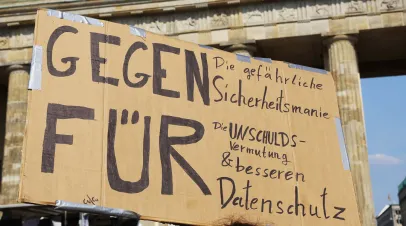 GEGEN
Die gefährliche
Sicherheitsmanie
FÜR
Die UNSCHULDS-
Vermutung
& besseren
Datenschutz